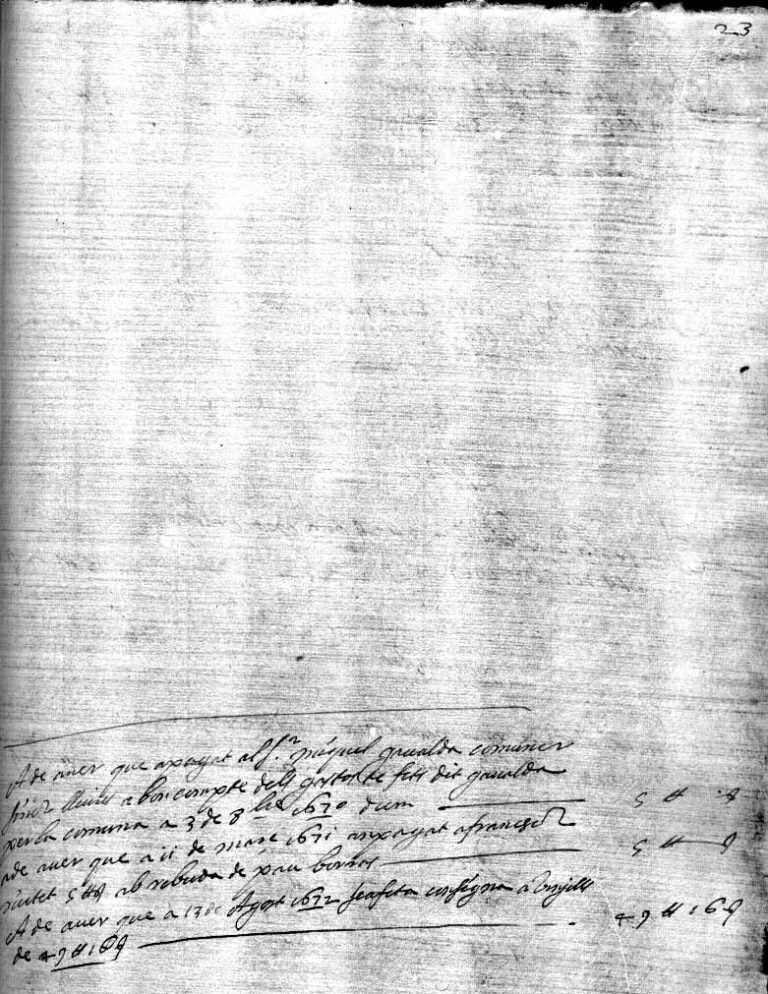 23
A de auer que a pagat al Sr miquel gaualda comuner
a bon compte dels gastos te fets dit gaualda
per la comuna a 3 de 8bre 1670 dum 5 ₶ 8
ade auer que a 11 de mars 1671 an pagat a francesch
5 ₶ 8 ab rebuda de pau borras 5 ₶ 8
A de auer que a 13 de Agost 1672 consigna a
de 49 ₶ 16 8 49 ₶ 16 8